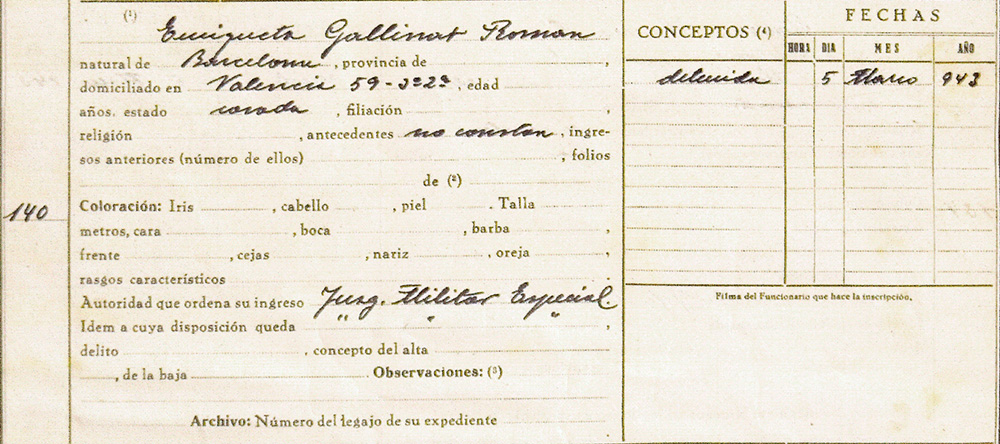 (1)
Enriqueta Gallinat Roman
natural de Barcelona, provincia de ,
domiciliado en Valencia 59-3º2ª, edad
años. estado casada, filiación ,
religión , antecedentes no constan, ingre-
sos anteriores (número de ellos) , folios
de (2)
140
Coloración: Iris , cabello , piel . Talla
metros, cara , boca , barba ,
frente , cejas , nariz , oreja ,
rasgos característicos
Autoridad que ordena su ingreso Juzg. Militar Especial.
Idem a cuya disposición queda " " " ,
delito , concepto del alta
, de la baja Observaciones: (3)
Archivo: Número del legajo de su expediente
CONCEPTOS (4) FECHAS
HORA DIA MES AÑO
detenida 5 Marzo 943
Filma del Funcionario que hace la inscripción.